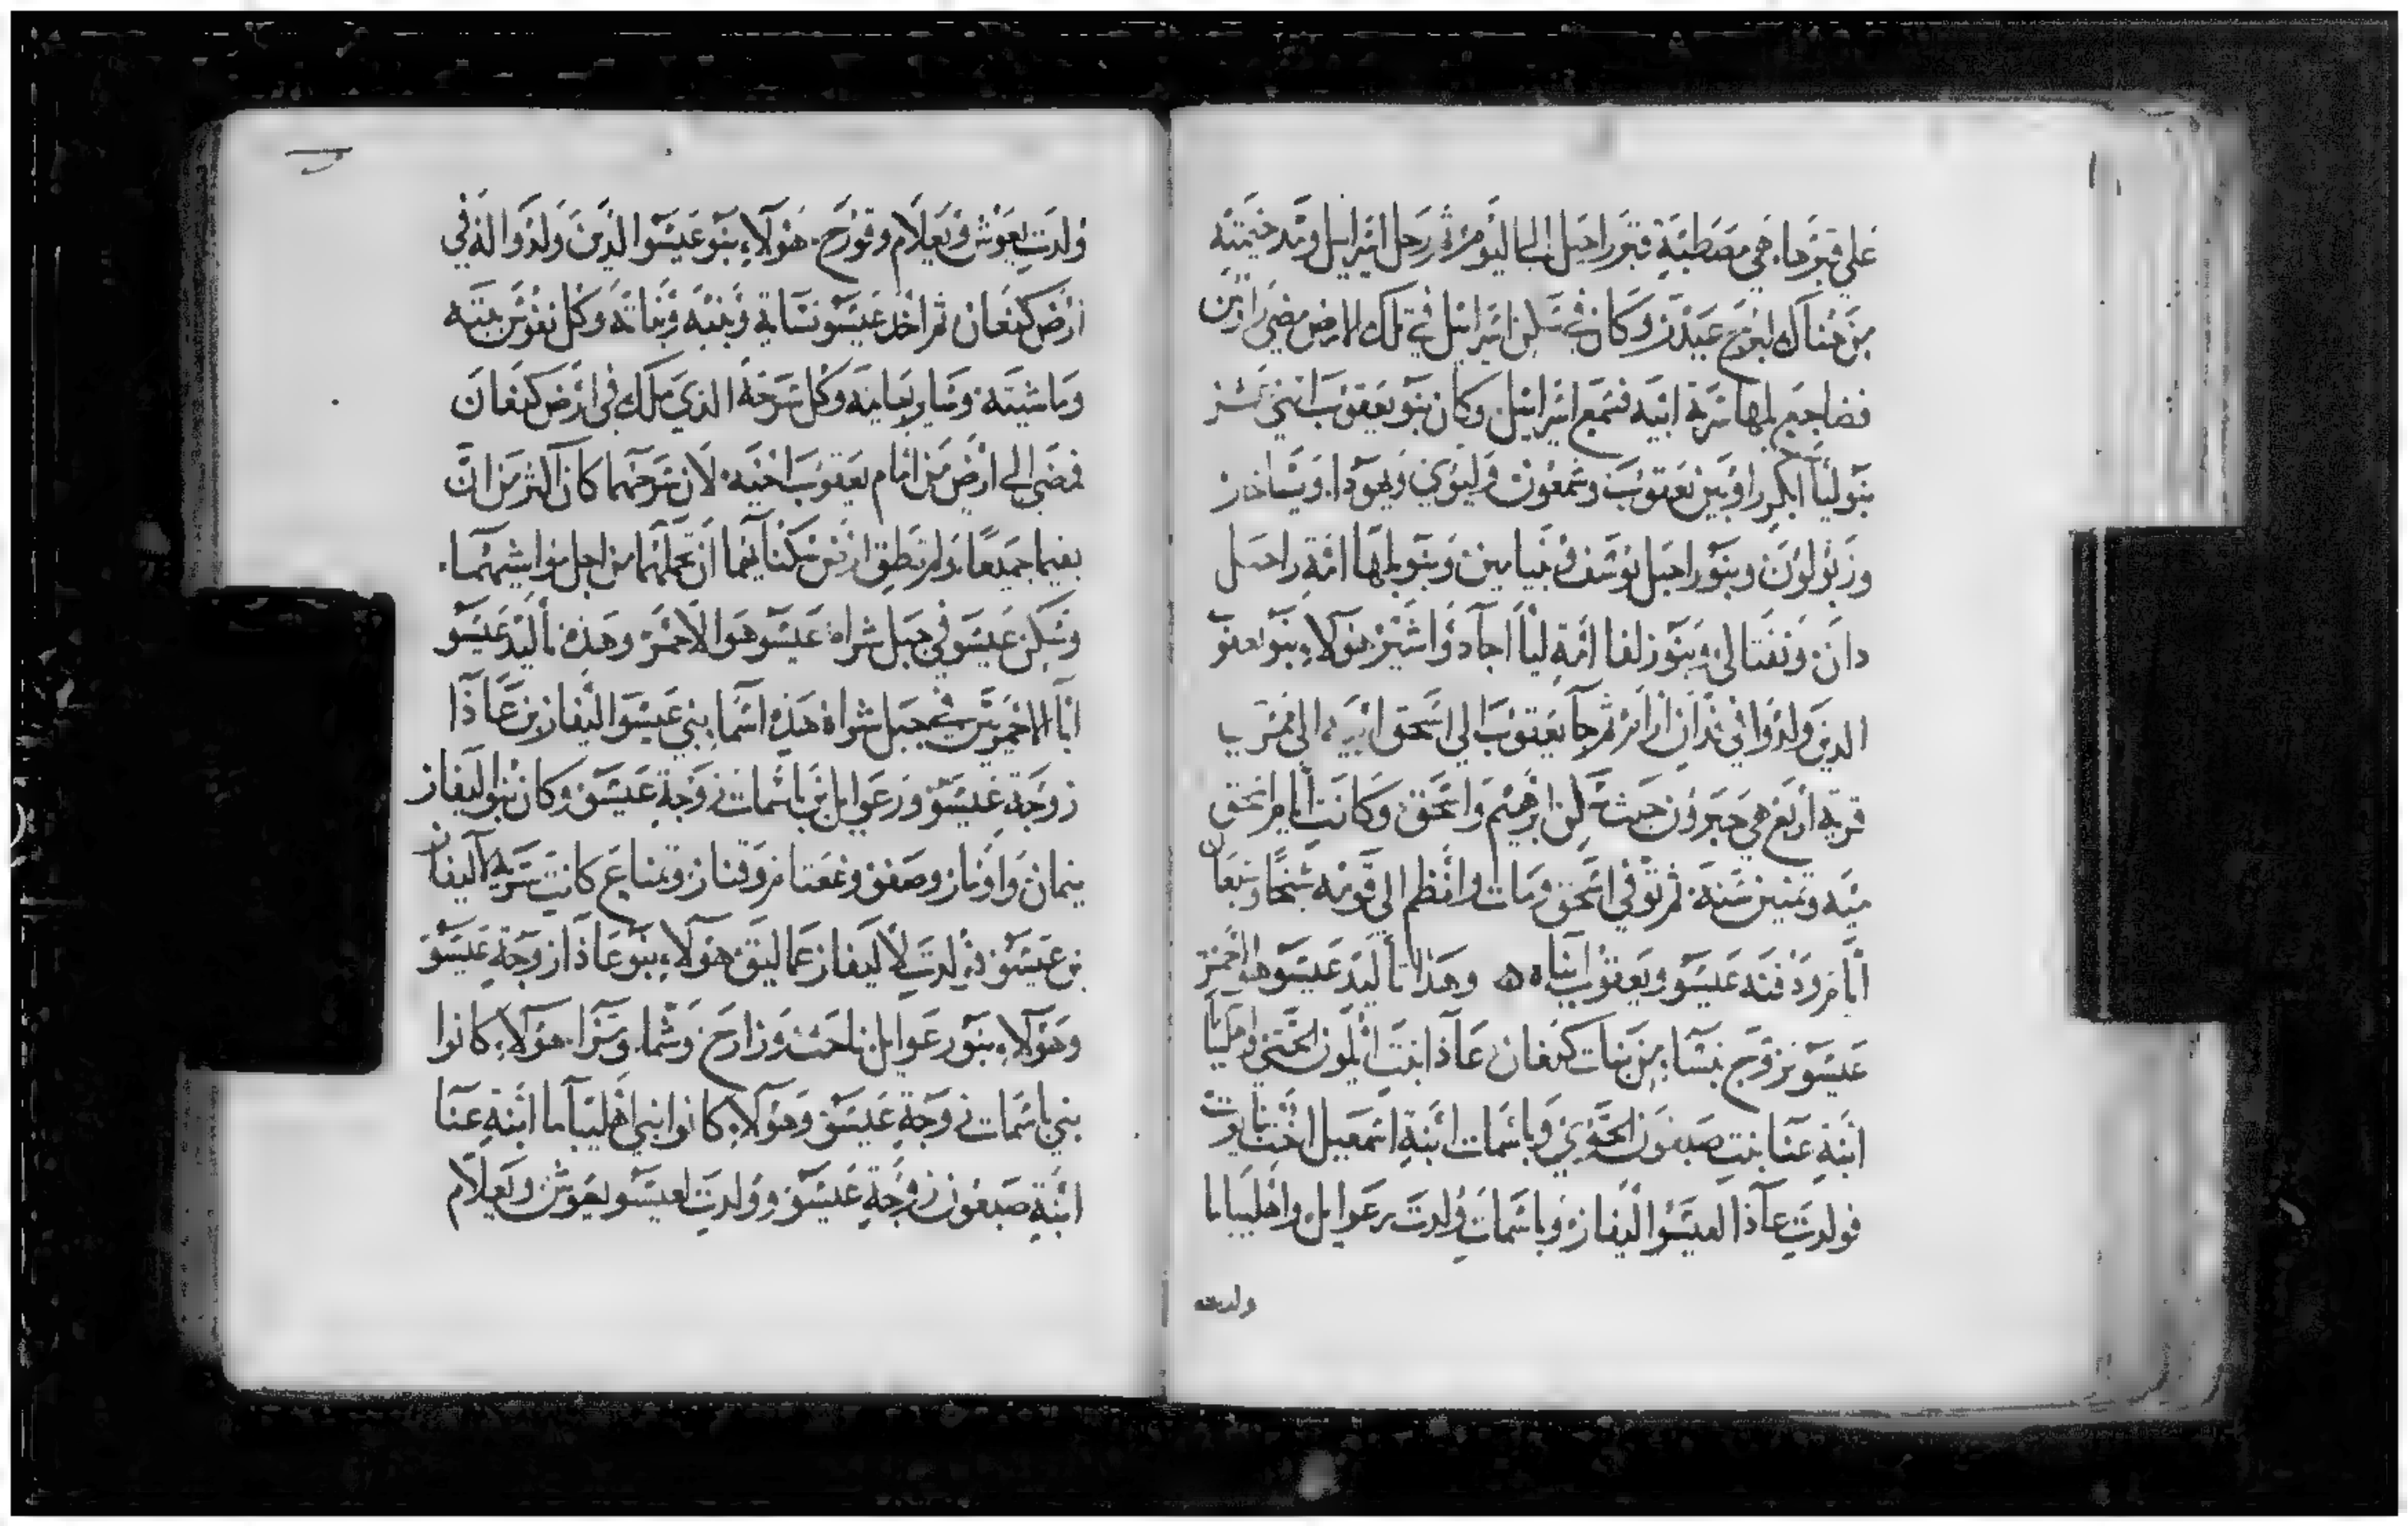 على قبرها هي مصطبة قبر راحيل الى اليوم ثم رحل اسرايل ومد خيمته
من هناك لبرج عيدر وكان في سكن اسرايل في تلك الارض مضى راوبين
فضاجع بلها سرية ابيه فسمع اسرايل وكان بنو يعقوب اثني عشر
بنو ليا بكر راوبين يعقوب وشمعون وليوي ويهودا ويساخار
وزبولون وبنو راحيل يوسف وبنيامين وبنو بلها امة راحيل
دان ونفتالي وبنو زلفا امة ليا اجاد واشير هولاء بنو يعقو
الدين ولدوا في فدان ارام ثم جا يعقوب الى اسحق ابيه الى ممرى
قرية اربع هي حبرون حيث سكن ابرهيم واسحق وكانت ايام اسحق
مية وثمنين سنة ثم توفي اسحق ومات وانظم الى قومه شيخا وشبعان
اياما ودفنه عيسو ويعقوب ابناه وهذا تأليد عيسو هو الاحمر
عيسو تزوج بنسا من بنات كنعان عاذا ابنت ايلون الحتي واهليباما
ابنة عنا بنت صبعون الحوي وباسمات ابنة اسمعيل اخت نبايوت
فولدت عاذا لعيسو اليفاز وباسمات ولدت رعوايل واهليباما
ولدت
ولدت يعوش ويعلام وقورح هولاء بنو عيسو الدين ولدوا له في
ارض كنعان ثم اخذ عيسو نسايه وبنيه وبناته وكل نفوس بيته
وماشيته وساير بهايمه وكل سرحه الذي ملك في ارض كنعان
فمضى الى ارض من امام يعقوب اخيه لان سرحهما كان اكثر من ان
يقيما جميعا ولم تطق ارض سكناهما ان تحملهما من اجل مواشيهما
وسكن عيسو في جبل شراة عيسو هو الاحمر وهذه تأليد عيسو
ابا الاحمريين في جبل شراة هذه اسما بني عيسو اليفاز بن عاذا
زوجة عيسو ورعوايل بن باسمات زوجة عيسو وكان بنو اليفاز
تيمان واومار وصفو وغعتام وقناز وتمناع كانت سرية لاليفاز
بن عيسو فولدت لاليفاز عماليق هولاء بنو عاذا زوجة عيسو
وهولاء بنو رعوايل ناحث وزارح وشما ومزا هولاء كانوا
بني باسمات زوجة عيسو وهولاء كانوا بني اهليباما ابنة عنا
ابنة صبعون زوجة عيسو وولدت لعيسو يعوش ويعلام